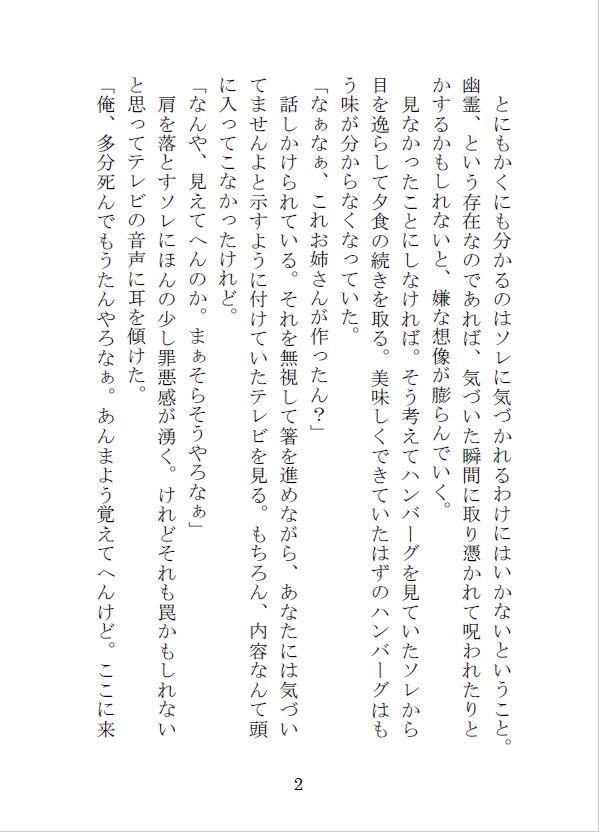 とにもかくにも分かるのはソレに気づかれるわけにはいかないということ。
幽霊、という存在なのであれば、気づいた瞬間に取り憑かれて呪われたりと
かするかもしれないと、嫌な想像が膨らんでいく。
　見なかったことにしなければ。そう考えてハンバーグを見ていたソレから
目を逸らして夕食の続きを取る。美味しくできていたはずのハンバーグはも
う味が分からなくなっていた。
「なぁなぁ、これお姉さんが作ったん？」
　話しかけられている。それを無視して箸を進めながら、あなたには気づい
てませんよと示すように付けていたテレビを見る。もちろん、内容なんて頭
に入ってこなかったけれど。
「なんや、見えてへんのか。まぁそらそうやろなぁ」
　肩を落とすソレにほんの少し罪悪感が湧く。けれどそれも罠かもしれない
と思ってテレビの音声に耳を傾けた。
「俺、多分死んでもうたんやろなぁ。あんまよう覚えてへんけど。ここに来
2